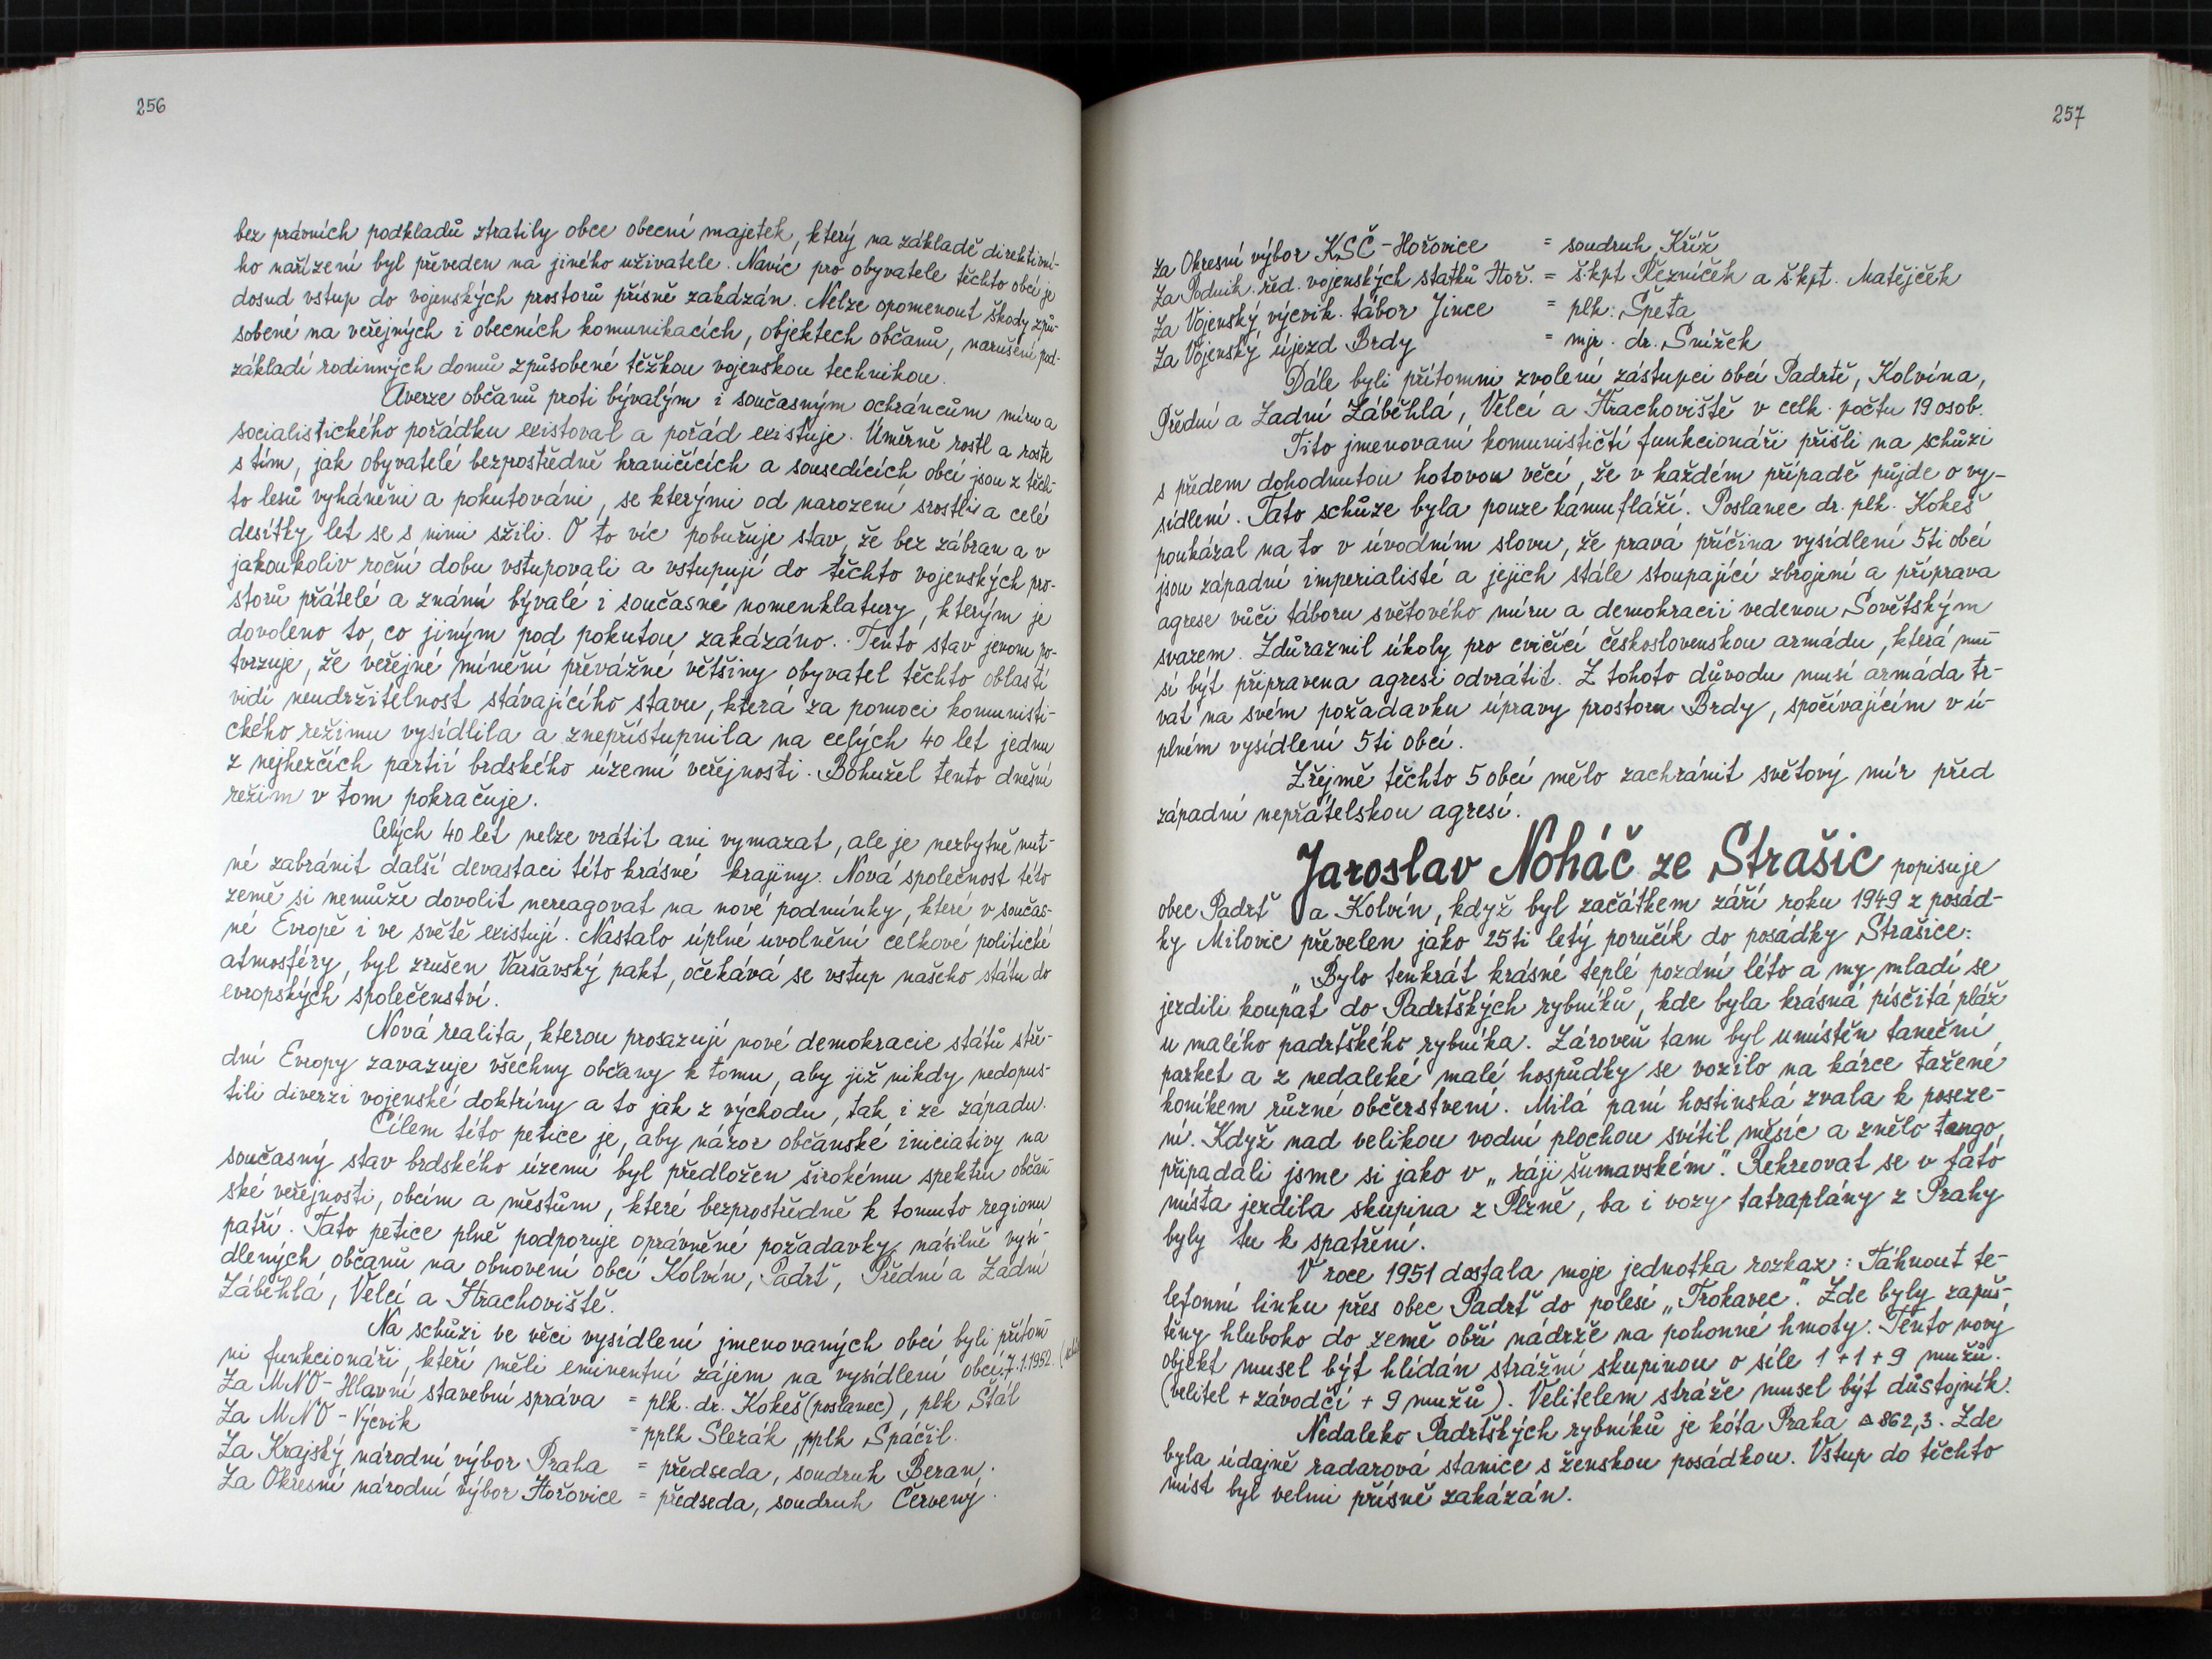 256
bez právních podkladů ztratily obce obecní majetek, který na základě direktivní-
ho nařízení byl převeden na jiného uživatele. Navíc pro obyvatele těchto obcí je
dosud vstup do vojenských prostorů přísně zakázán. Nelze opomenout škody způ-
sobené na veřejných i obecních komunikacích, objektech občanů, narušení pod-
základí rodinných domů způsobené těžkou vojenskou technikou.
Averze občanů proti bývalým i současným ochráncům míru a
socialistického pořádku existoval a pořád existuje. Úměrně rostl a roste
s tím, jak obyvatelé bezprostředně hraničících a sousedících obcí jsou z těch-
to lesů vyháněni a pokutováni, se kterými od narození srostli a celé
desítky let se s nimi sžili. O to víc pobuřuje stav, že bez zábran a v
jakoukoliv roční dobu vstupovali a vstupují do těchto vojenských pro-
storů přátelé a známí bývalé i současné nomenklatury, kterým je
dovoleno to, co jiným pod pokutou zakázáno. Tento stav jenom po-
tvrzuje, že veřejné mínění převážné většiny obyvatel těchto oblastí
vidí neudržitelnost stávajícího stavu, která za pomoci komunisti-
ckého režimu vysídlila a znepřístupnila na celých 40 let jednu
z nejhezčích partií brdského území veřejnosti. Bohužel tento dnešní
režim v tom pokračuje.
Celých 40 let nelze vrátit ani vymazat, ale je nezbytně nut-
né zabránit další devastaci této krásné krajiny. Nová společnost této
země si nemůže dovolit nereagovat na nové podmínky, které v součas-
né Evropě i ve světě existují. Nastalo úplné uvolnění celkové politické
atmosféry, byl zrušen Varšavský pakt, očekává se vstup našeho státu do
evropských společenství.
Nová realita, kterou prosazují nové demokracie států stře-
dní Evropy zavazuje všechny občany k tomu, aby již nikdy nedopus-
tili diverzi vojenské doktríny a to jak z východu, tak i ze západu.
Cílem této petice je, aby názor občanské iniciativy na
současný stav brdského území byl předložen širokému spektru občan
ské veřejnosti, obcím a městům, které bezprostředně k tomuto regionu
patří. Tato petice plně podporuje oprávněné požadavky násilně vysí-
dlených občanů na obnovení obcí Kolvín, Padrť, Přední a Zadní
Záběhlá, Velcí a Hrachoviště.
Na schůzi ve věci vysídlení jmenovaných obcí byli přítom
ni funkcionáři, kteří měli eminentní zájem na vysídlení obcí, 7.1.1952.
Za MNO - Hlavní stavební správa = plk. dr. Kokeš (poslanec), plk Stál
Za MNO - Výcvik = pplk Slezák, pplk Spáčil.
Za Krajský národní výbor Praha = předseda, soudruh Beran.
Za Okresní národní výbor Hořovice = předseda, soudruh Červený.
257
Za Okresní výbor KSČ - Hořovice = soudruh Kříž
Za Podnik. řed. vojenských statků Hoř. = š.kpt Řezníček a š.kpt. Matějček
Za Vojenský výcvik. tábor Jince = plk. Špeta
Za Vojenský újezd Brdy = mjr. dr. Snížek
Dále byli přítomni zvolení zástupci obcí Padrtě, Kolvína,
Přední a Zadní Záběhlá, Velcí a Hrachoviště v celk. počtu 19 osob.
Tito jmenovaní komunističtí funkcionáři přišli na schůzi
s předem dohodnutou hotovou věcí, že v každém případě půjde o vy-
sídlení. Tato schůze byla pouze kamufláží. Poslanec dr. plk. Kokeš
poukázal na to v úvodním slovu, že pravá příčina vysídlení 5ti obcí
jsou západní imperialisté a jejich stále stoupající zbrojení a příprava
agrese vůči táboru světového míru a demokracii vedenou Sovětským
svazem. Zdůraznil úkoly pro cvičící československou armádu, která mu
sí být připravena agresi odvrátit. Z tohoto důvodu musí armáda tr-
vat na svém požadavku úpravy prostoru Brdy, spočívajícím v ú-
plném vysídlení 5ti obcí.
Zřejmě těchto 5 obcí mělo zachránit světový mír před
západní nepřátelskou agresí.
Jaroslav Noháč ze Strašic popisuje
obec Padrť a Kolvín, když byl začátkem září roku 1949 z posád-
ky Milovic převelen jako 25ti letý poručík do posádky Strašice:
„Bylo tenkrát krásné teplé pozdní léto a my mladí se
jezdili koupat do Padrtských rybníků, kde byla krásná písčitá pláž
u malého padrtského rybníka. Zároveň tam byl umístěn taneční
parket a z nedaleké malé hospůdky se vozilo na kárce tažené
koníkem různé občerstvení. Milá paní hostinská zvala k poseze-
ní. Když nad velikou vodní plochou svítil měsíc a znělo tango,
připadali jsme si jako v „ráji šumavském". Rekreovat se v tato
místa jezdila skupina z Plzně, ba i vozy tatraplány z Prahy
byly tu k spatření.
V roce 1951 dostala moje jednotka rozkaz: Táhnout te-
lefonní linku přes obec Padrť do polesí „Trokavec". Zde byly zapuš-
těny hluboko do země obří nádrže na pohonné hmoty. Tento nový
objekt musel být hlídán strážní skupinou o síle 1+1+9 mužů.
(velitel + závodčí + 9 mužů). Velitelem stráže musel být důstojník.
Nedaleko Padrtských rybníků je kóta Praha △ 862,3. Zde
byla údajně radarová stanice s ženskou posádkou. Vstup do těchto
míst byl velmi přísně zakázán.